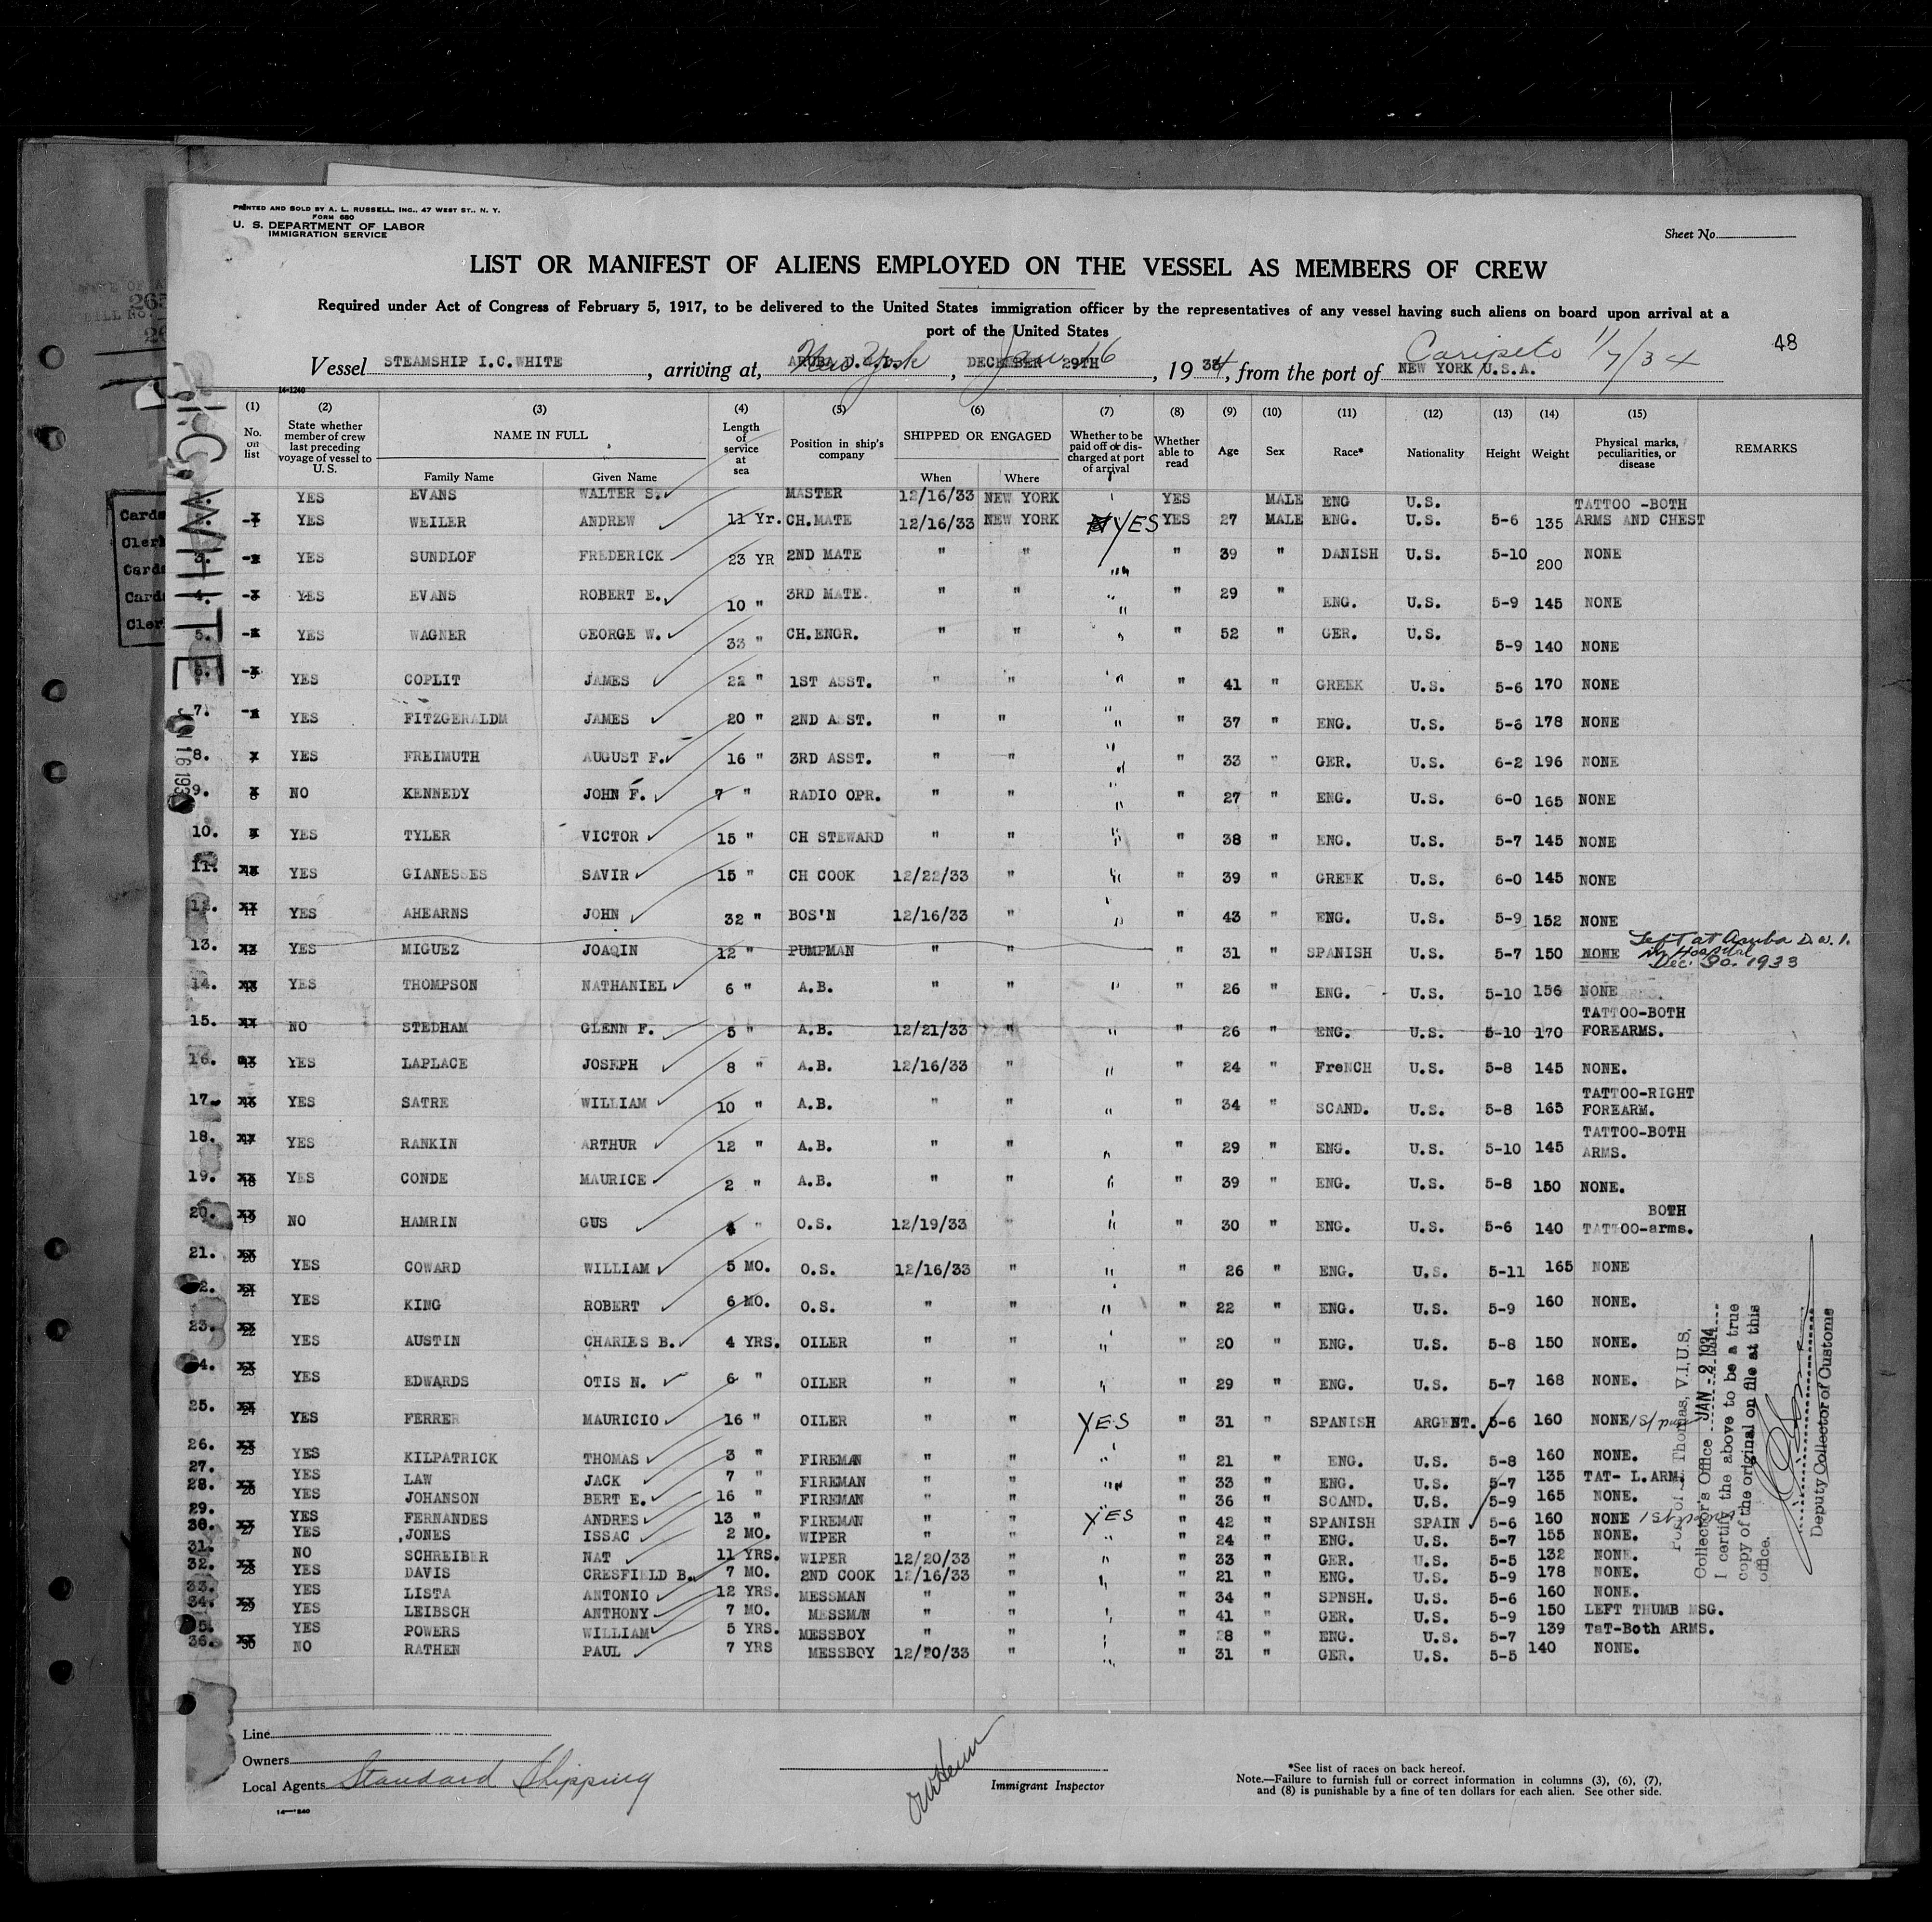 PRINTED AND SOLD BY A. L. RUSSELL, INC., 47 WEST ST., N. Y.
FORM 680
U. S. DEPARTMENT OF LABOR
IMMIGRATION SERVICE
Sheet No.
LIST OR MANIFEST OF ALIENS EMPLOYED ON THE VESSEL AS MEMBERS OF CREW
Required under Act of Congress of February 5, 1917, to be delivered to the United States immigration officer by the representatives of any vessel having such aliens on board upon arrival at a
port of the United States
48
Vessel STEAMSHIP I.C.WHITE, arriving at, ARUBA D.W.I. New York, DECEMBER 29TH Jan. 16, 1934, from the port of NEW YORK U.S.A. Caripito 1/7/34
14-1240
(1) (2) (3) (4) (5) (6) (7) (8) (9) (10) (11) (12) (13) (14) (15)
No. on list
State whether member of crew last preceding voyage of vessel to U.S.
NAME IN FULL
Family Name Given Name
Length of service at sea
Position in ship's company
SHIPPED OR ENGAGED
When Where
Whether to be paid off or discharged at port of arrival
Whether able to read
Age Sex Race* Nationality Height Weight
Physical marks, peculiarities, or disease
REMARKS
I.C. WHITE
JAN 16 193
YES EVANS WALTER S. MASTER 12/16/33 NEW YORK " YES MALE ENG U.S.
YES WEILER ANDREW 11 Yr. CH.MATE 12/16/33 NEW YORK YES YES 27 MALE ENG. U.S. 5-6 135 TATTOO -BOTH ARMS AND CHEST
3. YES SUNDLOF FREDERICK 23 YR 2ND MATE " " " " 39 " DANISH U.S. 5-10 200 NONE
4. YES EVANS ROBERT E. 10 " 3RD MATE. " " " " 29 " ENG. U.S. 5-9 145 NONE
5. YES WAGNER GEORGE W. 33 " CH.ENGR. " " " " 52 " GER. U.S. 5-9 140 NONE
6. YES COPLIT JAMES 22 " 1ST ASST. " " " " 41 " GREEK U.S. 5-6 170 NONE
7. YES FITZGERALDM JAMES 20 " 2ND ASST. " " " " 37 " ENG. U.S. 5-6 178 NONE
8. YES FREIMUTH AUGUST F. 16 " 3RD ASST. " " " " 33 " GER. U.S. 6-2 196 NONE
9. NO KENNEDY JOHN F. 7 " RADIO OPR. " " " " 27 " ENG. U.S. 6-0 165 NONE
10. YES TYLER VICTOR 15 " CH STEWARD " " " " 38 " ENG. U.S. 5-7 145 NONE
11. YES GIANESSES SAVIR 15 " CH COOK 12/22/33 " " " 39 " GREEK U.S. 6-0 145 NONE
12. YES AHEARNS JOHN 32 " BOS'N 12/16/33 " " " 43 " ENG. U.S. 5-9 152 NONE
13. YES MIGUEZ JOAQIN 12 " PUMPMAN " " " 31 " SPANISH U.S. 5-7 150 NONE Left at Aruba D.W.I. in Hospital Dec. 30. 1933
14. YES THOMPSON NATHANIEL 6 " A.B. " " " " 26 " ENG. U.S. 5-10 156 NONE
15. NO STEDHAM GLENN F. 5 " A.B. 12/21/33 " " " 26 " ENG. U.S. 5-10 170 TATTOO-BOTH FOREARMS.
16. YES LAPLACE JOSEPH 8 " A.B. 12/16/33 " " " 24 " FreNCH U.S. 5-8 145 NONE.
17. YES SATRE WILLIAM 10 " A.B. " " " " 34 " SCAND. U.S. 5-8 165 TATTOO-RIGHT FOREARM.
18. YES RANKIN ARTHUR 12 " A.B. " " " " 29 " ENG. U.S. 5-10 145 TATTOO-BOTH ARMS.
19. YES CONDE MAURICE 2 " A.B. " " " " 39 " ENG. U.S. 5-8 150 NONE.
20. NO HAMRIN GUS 4 " O.S. 12/19/33 " " " 30 " ENG. U.S. 5-6 140 BOTH TATTOO-arms.
21. YES COWARD WILLIAM 5 MO. O.S. 12/16/33 " " " 26 " ENG. U.S. 5-11 165 NONE
22. YES KING ROBERT 6 MO. O.S. " " " " 22 " ENG. U.S. 5-9 160 NONE.
23. YES AUSTIN CHARLES B. 4 YRS. OILER " " " " 20 " ENG. U.S. 5-8 150 NONE.
24. YES EDWARDS OTIS N. 6 " OILER " " " " 29 " ENG. U.S. 5-7 168 NONE.
25. YES FERRER MAURICIO 16 " OILER " " YES " 31 " SPANISH ARGENT. 5-6 160 NONE
26. YES KILPATRICK THOMAS 3 " FIREMAN " " " " 21 " ENG. U.S. 5-8 160 NONE.
27. YES LAW JACK 7 " FIREMAN " " " " 33 " ENG. U.S. 5-7 135 TAT- L.ARM.
28. YES JOHANSON BERT E. 16 " FIREMAN " " " 36 " SCAND. U.S. 5-9 165 NONE.
29. YES FERNANDES ANDRES 13 " FIREMAN " " YES " 42 " SPANISH SPAIN 5-6 160 NONE
30. YES JONES ISSAC 2 MO. WIPER " " " " 24 " ENG. U.S. 5-7 155 NONE.
31. NO SCHREIBER NAT 11 YRS. WIPER 12/20/33 " " " 33 " GER. U.S. 5-5 132 NONE.
32. YES DAVIS CRESFIELD B. 7 MO. 2ND COOK 12/16/33 " " " 21 " ENG. U.S. 5-9 178 NONE.
33. YES LISTA ANTONIO 12 YRS. MESSMAN " " " 34 " SPNSH. U.S. 5-6 160 NONE.
34. YES LEIBSCH ANTHONY 7 MO. MESSMAN " " " " 41 " GER. U.S. 5-9 150 LEFT THUMB MSG.
35. YES POWERS WILLIAM 5 YRS. MESSBOY " " " " 28 " ENG. U.S. 5-7 139 TaT-Both ARMS.
36. NO RATHEN PAUL 7 YRS MESSBOY 12/20/33 " " " 31 " GER. U.S. 5-5 140 NONE.
Port of St. Thomas, V.I.U.S,
Collector's Office JAN - 2 1934
I certify the above to be a true
copy of the original on file at this
office.
Deputy Collector of Customs
Line
Owners
Local Agents Standard Shipping
14-1240
Immigrant Inspector
*See list of races on back hereof.
Note.—Failure to furnish full or correct information in columns (3), (6), (7),
and (8) is punishable by a fine of ten dollars for each alien. See other side.